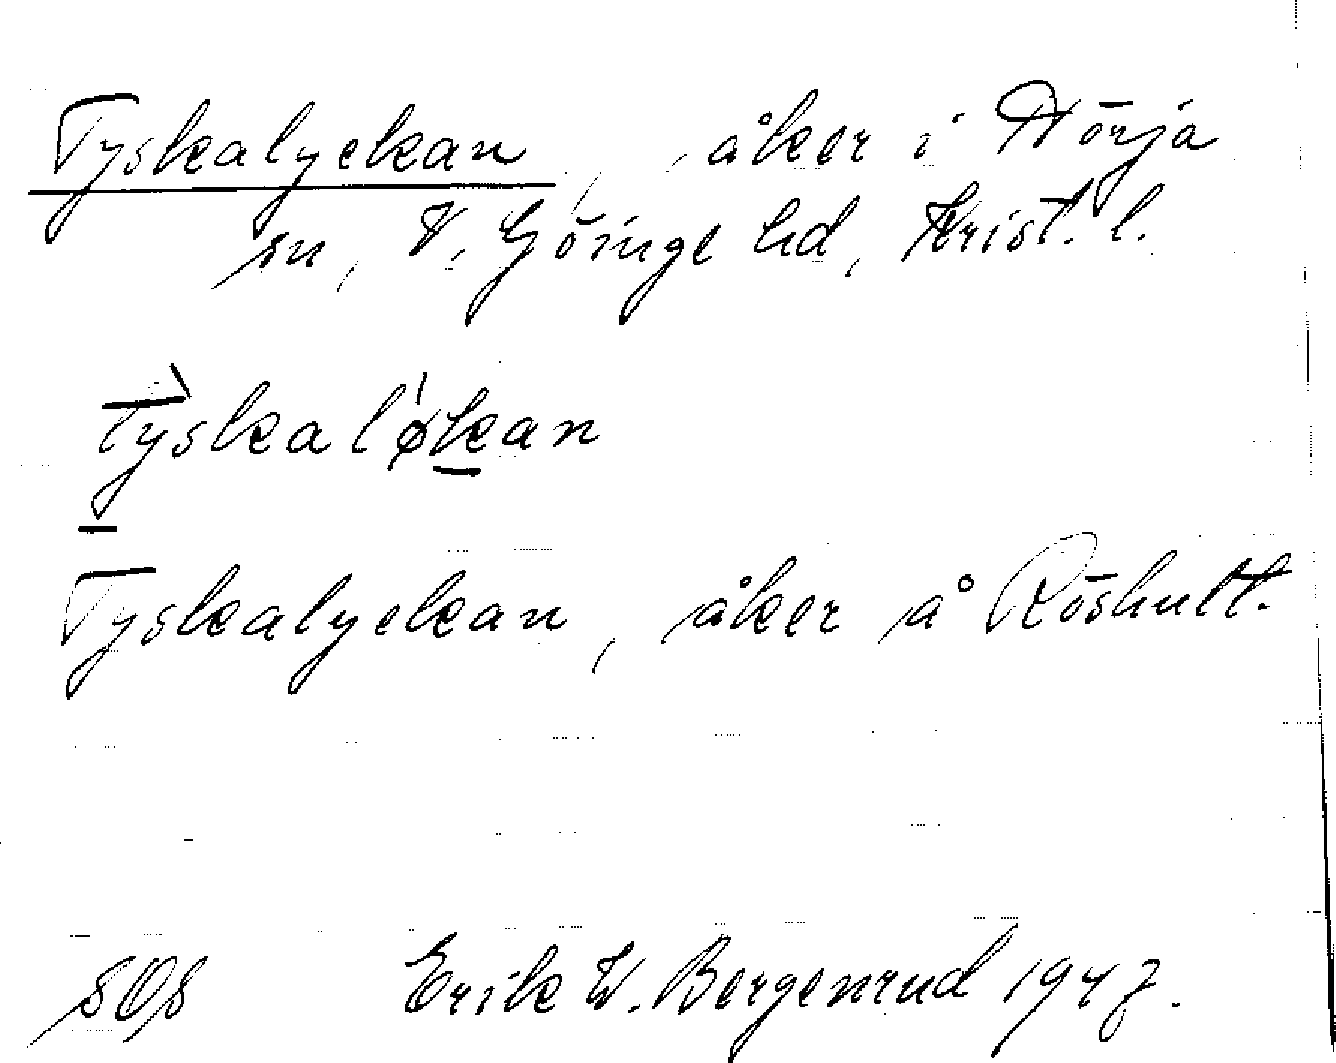 Tyskalyckan, åker i Nörja
sn, V. Göinge hd, Krist. l.
Tyskaløkan
Tyskalyckan, åker å Röshult.
SOS Erik W. Bergenrud 1947.